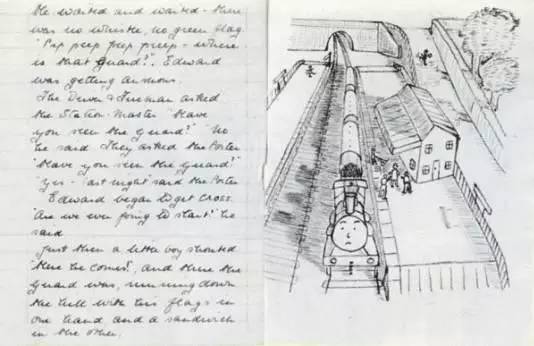 He waited and waited - there
was no whistle, no green flag.
"Peep peep peep peep - where
is that guard?", Edward
was getting anxious.
The Driver & Fireman asked
the Station-Master "Have
you seen the Guard?" "No"
he said. They asked the Porter
"Have you seen the Guard?"
"Yes - last night" said the Porter
Edward began to get cross.
"Are we ever going to start?" he
said
Just then a little boy shouted
"Here he comes!", and there the
Guard was, running down
the hill with his flags in
one hand, and a sandwich
in the other.